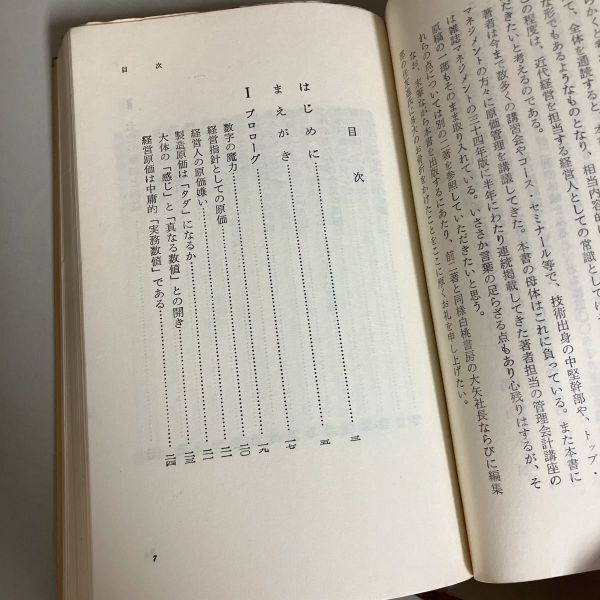 て、全体を通読すると、本
な形でもあるようなものとなり、相当内容的に
この程度は、近代経営を担当する経営人としての常識としては
だきたいと考えるのである。
著者は今まで数多くの講習会やコース・セミナール等で、技術出身の中堅幹部や、トップ・
マネジメントの方々に原価管理を講議してきた。本書の母体はこれに負っている。また本書に
は雑誌マネジメントの三十四年版に半年にわたり連続掲載してきた著者担当の管理会計講座の
原稿の一部もそのまま取り入れている。いささか言葉の足らざる点もあり心残りはするが、そ
れらの点については別の二著を参照していただきたいと思う。
なお、末筆ながら本書を出版するにあたり、前二著と同様白桃書房の大矢社長ならびに編集
多大の御骨折をかけたことをここに厚くお礼を申し上げたい。
目次
はじめに……三
まえがき……一五
Ⅰ プロローグ……一七
数字の魔力……一九
経営指針としての原価……二〇
経営人の原価嫌い……二一
製造原価は「タダ」になるか……二一
大体の「感じ」と「真なる数値」との開き……二三
経営原価は中庸的「実務数値」である……二四
目次
7